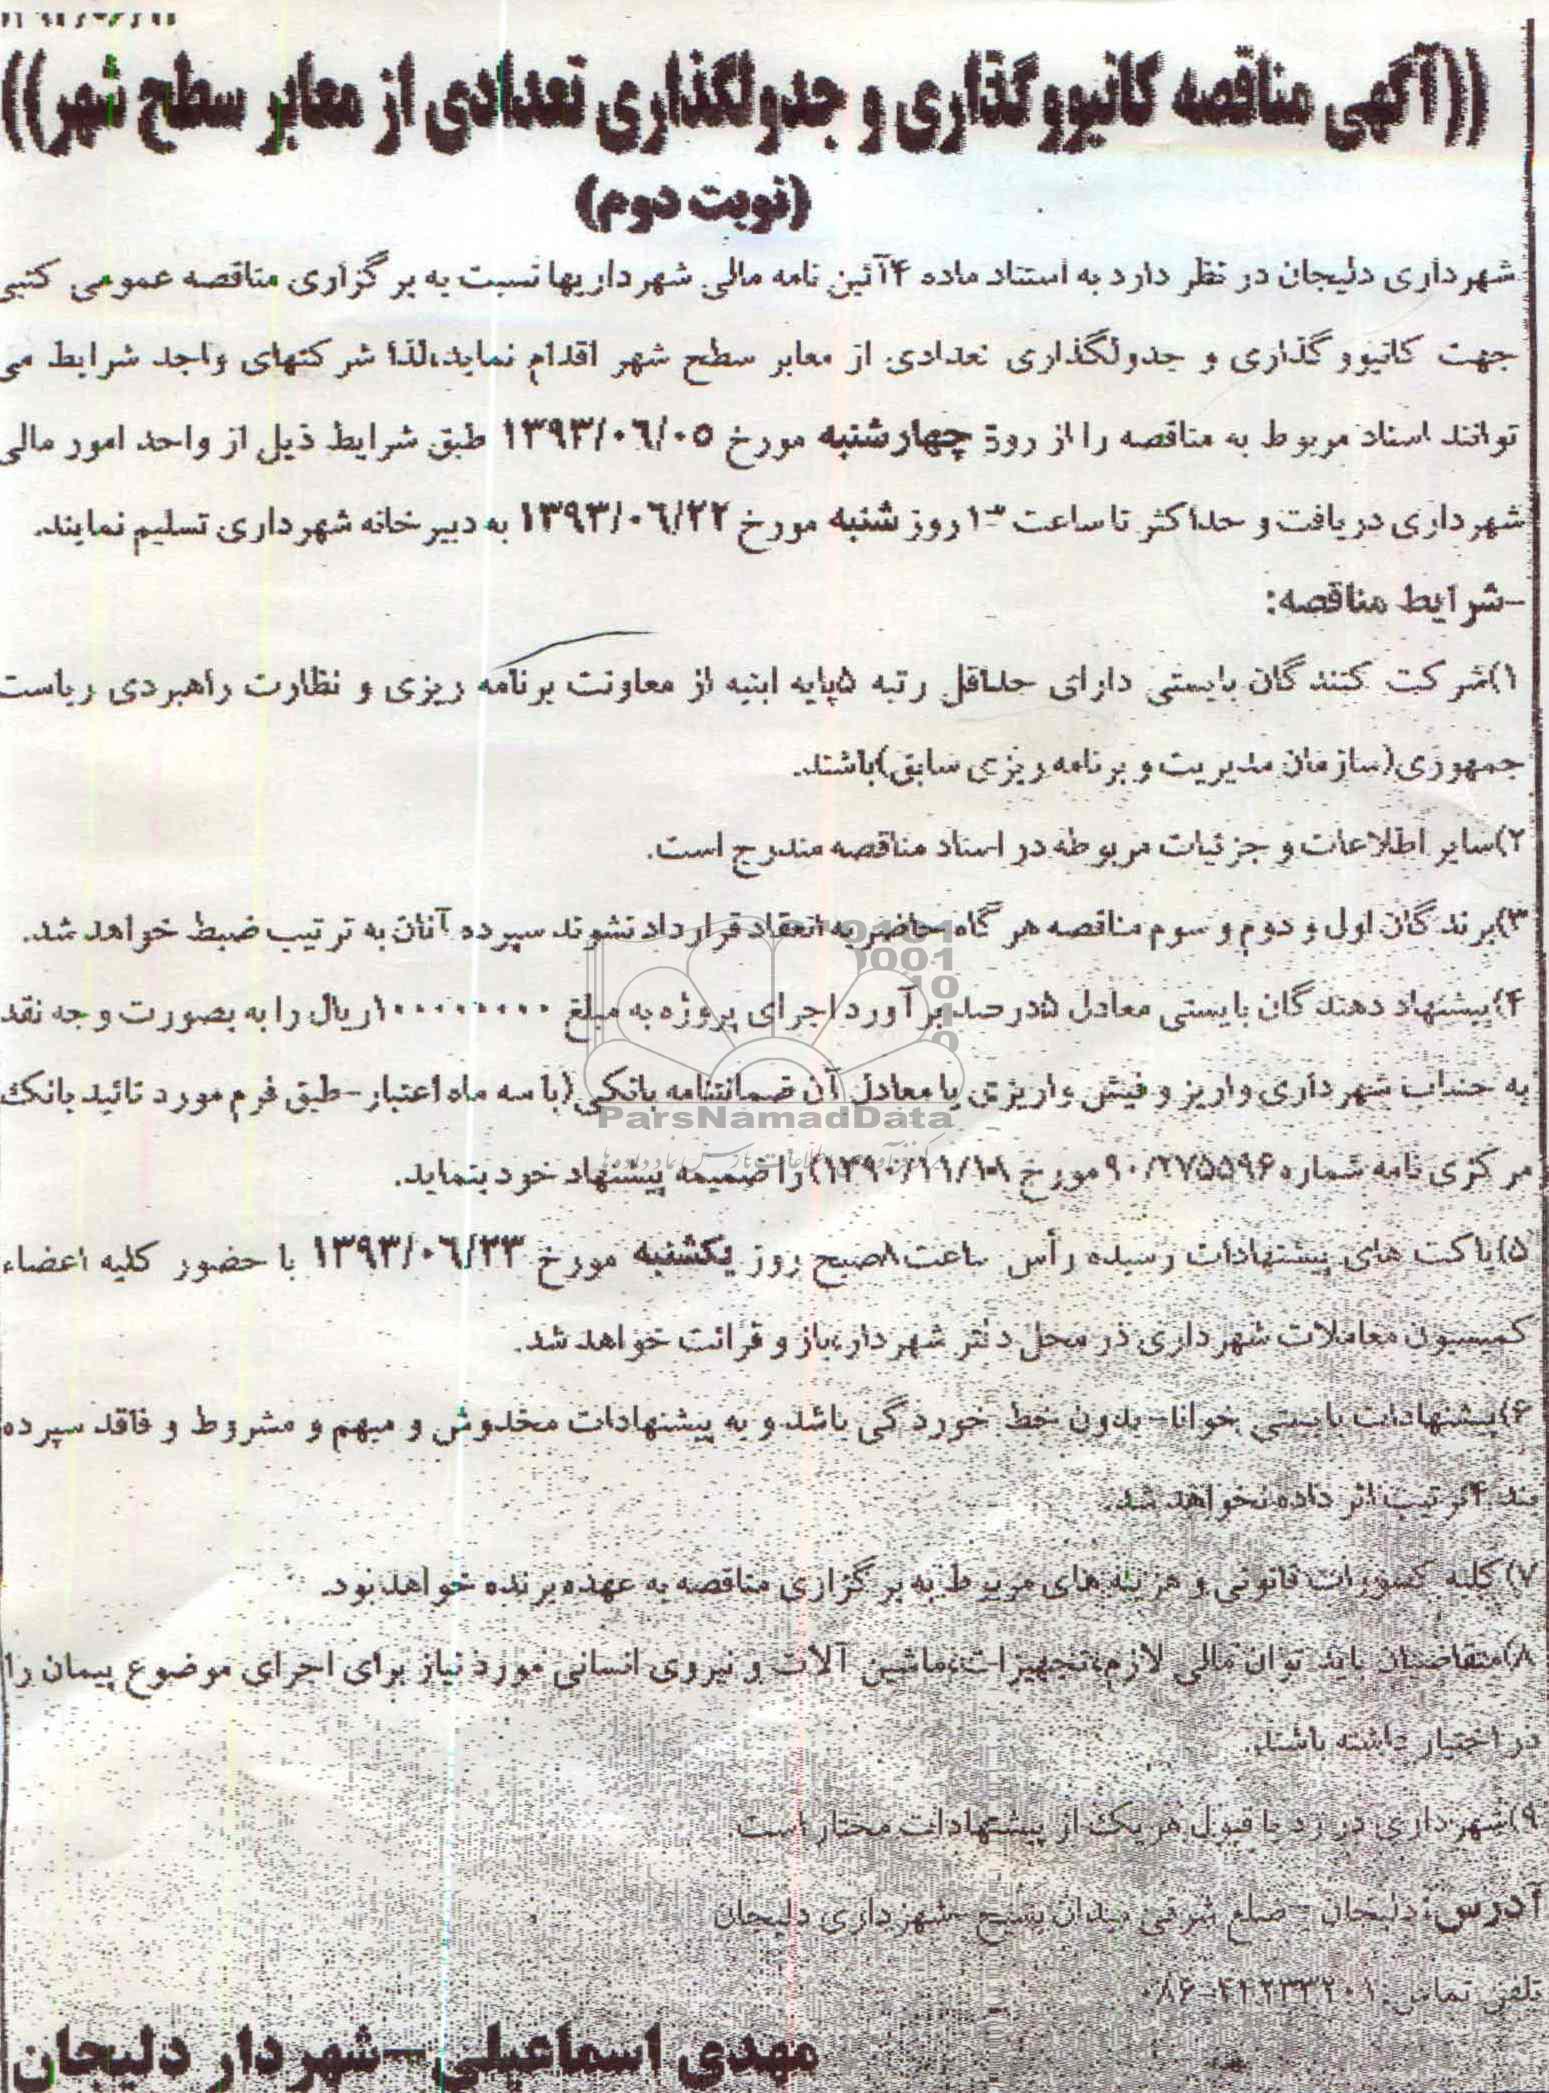 ((آگهی مناقصه کانیووگذاری و جدولگذاری تعدادی از معابر سطح شهر))
(نوبت دوم)
شهرداری دلیجان در نظر دارد به استناد ماده ۴آئین نامه مالی شهرداریها نسبت به برگزاری مناقصه عمومی کتبی
جهت کانیوو گذاری و جدولگذاری تعدادی از معابر سطح شهر اقدام نماید،لذا شرکتهای واجد شرایط می
توانند اسناد مربوط به مناقصه را از روز چهارشنبه مورخ ۱۳۹۳/۰۶/۰۵ طبق شرایط ذیل از واحد امور مالی
شهرداری دریافت و حداکثر تا ساعت روز شنبه مورخ ۱۳۹۳/۰۶/۲۲ به دبیرخانه شهرداری تسلیم نمایند.
-شرایط مناقصه:
۱)شرکت کنندگان بایستی دارای حداقل رتبه ۵پایه ابنیه از معاونت برنامه ریزی و نظارت راهبردی ریاست
جمهوری(سازمان مدیریت و برنامه ریزی سابق)باشند.
۲)سایر اطلاعات و جزئیات مربوطه در اسناد مناقصه مندرج است.
۳)برندگان اول و دوم و سوم مناقصه هر گاه حاضر به انعقاد قرارداد نشوند سپرده آنان به ترتیب ضبط خواهد شد.
۴)پیشنهاد دهندگان بایستی معادل ۵درصد برآورد اجرای پروژه به مبلغ ریال را به بصورت وجه نقد
به حساب شهرداری واریز و فیش واریزی یا معادل آن ضمانتنامه بانکی(با سه ماه اعتبار-طبق فرم مورد تائید بانک
مرکزی نامه شماره ۹۰/۲۷۵۵۹۶ مورخ را ضمیمه پیشنهاد خود بنماید.
۵)پاکت های پیشنهادات رسیده رأس ساعت۸صبح روز یکشنبه مورخ ۱۳۹۳/۰۶/۲۳ با حضور کلیه اعضاء
کمیسیون معاملات شهرداری در محل دفتر شهردار،باز و قرائت خواهد شد.
۶)پیشنهادات بایستی خوانا-بدون خط خوردگی باشد و به پیشنهادات مخدوش و مبهم و مشروط و فاقد سپرده
بند ۴ترتیب اثر داده نخواهد شد.
۷)کلیه کسورات قانونی و هزینه های مربوط به برگزاری مناقصه به عهده برنده خواهد بود.
۸)متقاضیان باید توان مالی لازم،تجهیزات،ماشین آلات و نیروی انسانی مورد نیاز برای اجرای موضوع پیمان را
در اختیار داشته باشند.
۹)شهرداری در رد یا قبول هر یک از پیشنهادات مختار است.
آدرس:دلیجان - ضلع شرقی میدان بسیج -شهرداری دلیجان
تلفن تماس: ۰۸۶-۴۴۲۲۳۳۲۰۱
مهدی اسماعیلی-شهردار دلیجان
ParsNamadData